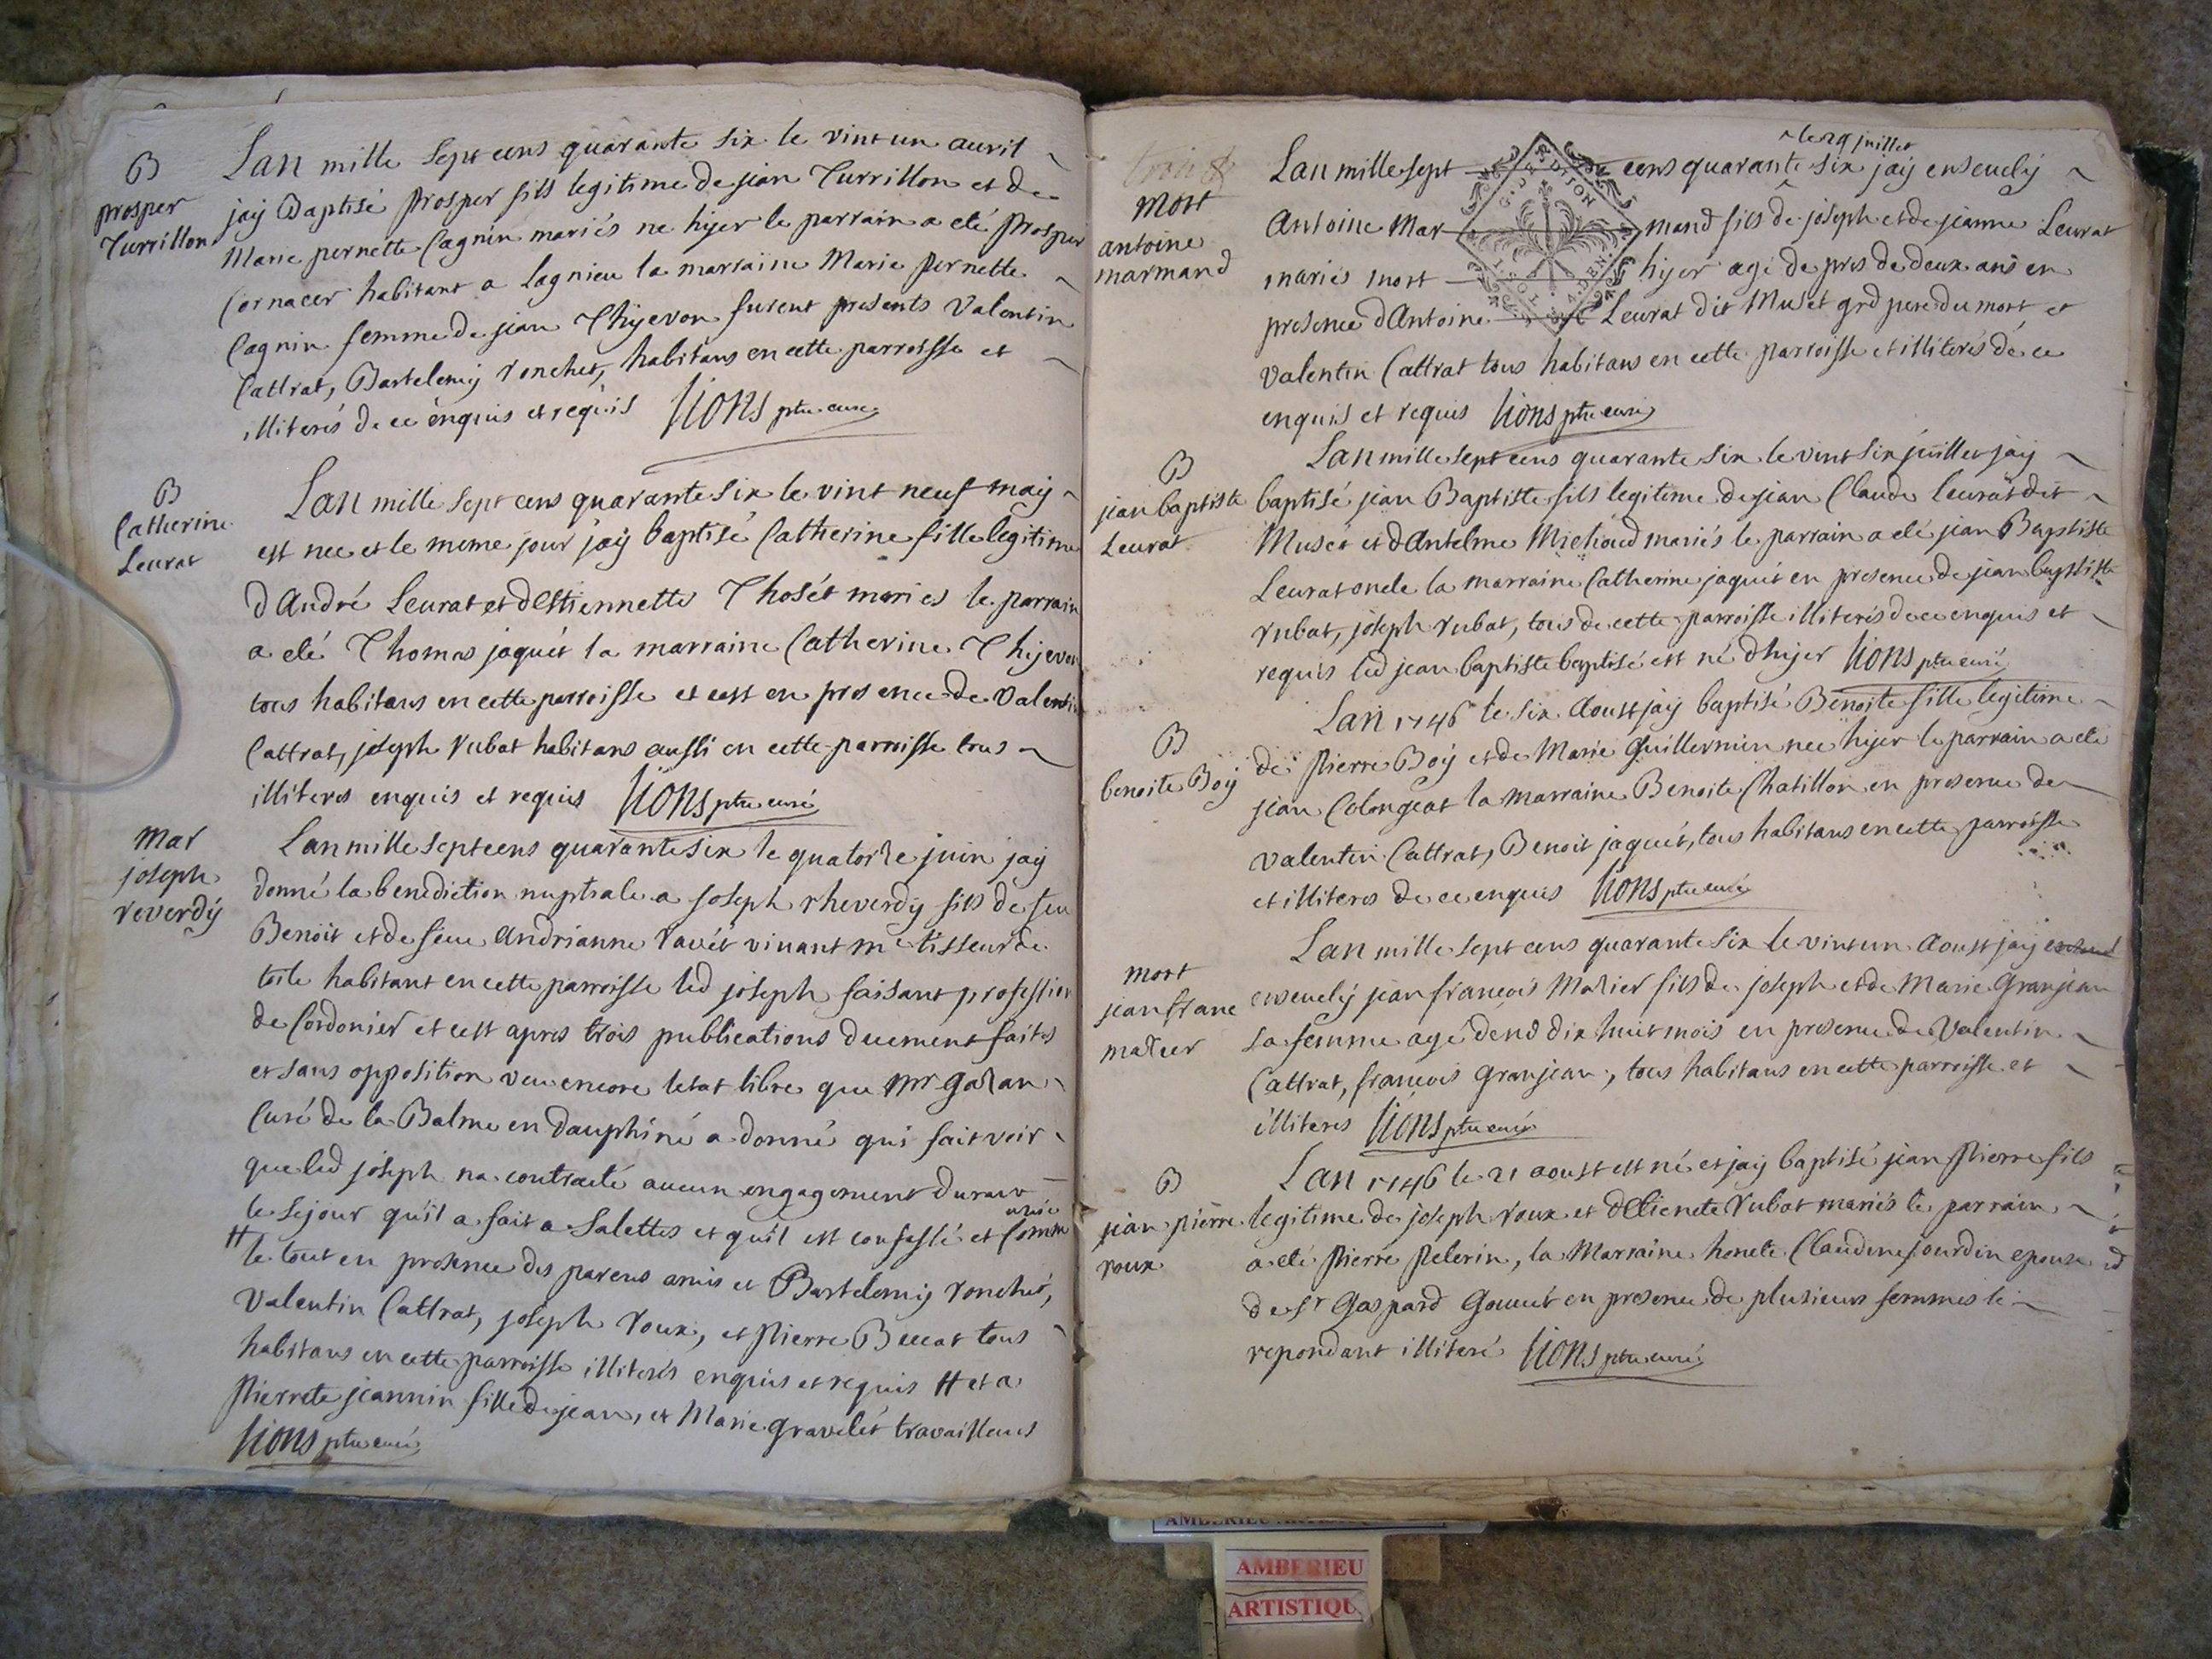 B
prosper
Turrillon
Lan mille sept cens quarante six le vint un auril
jaÿ Baptisé prosper fils legitime de jean Turrillon et de
Marie pernette Cagnin mariés ne hÿer le parrain a eté prosper
Cornacer habitant a Lagnieu la marraine Marie pernette
Cagnin femme de jean Thÿevon furent presents Valentin
Cattrat, Bartelemÿ ronchet, habitans en cette parroisse et
illiterés de ce enquis et requis Lions ptre curé
B
Catherine
Leurat
Lan mille sept cens quarante six le vint neuf maÿ
est nee et le meme jour jaÿ baptisé Catherine fille legitime
d'André Leurat et d'Estiennette Thosét mariés le parrain
a eté Thomas jaquét la marraine Catherine Thÿevon
tous habitans en cette parroisse et cest en presence de Valentin
Cattrat, joseph rubat habitans aussi en cette parroisse tous
illiteres enquis et requis Lions ptre curé
Mar
joseph
reverdÿ
Lan mille sept cens quarante six le quatorze juin jaÿ
donné la benediction nuptiale a joseph rheverdÿ fils de feu
Benoit et de feue Andrianne ravét vivant me tisseur de
toile habitant en cette parroisse led joseph faisant profession
de Cordonier et cest apres trois publications duement faites
et sans opposition veu encore letat libre que Mr gazan
Curé de la Balme en Dauphiné a donné qui fait voir
que led joseph na contracté aucun engagement durant
le sejour qu'il a fait a Salettes et qu'il est confessé et Commu
nié
# le tout en presence des parens amis et Bartelemÿ ronchet,
Valentin Cattrat, joseph roux, et pierre Beccat tous
habitans en cette parroisse illiterés enquis et requis # et a
pierrete jeannin fille de jean, et Marie gravelét travailleurs
Lions ptre curé
Mort
antoine
marmand
le 29 juillet
Lan mille sept cens quarante six jaÿ ensevelÿ
Antoine Mar mand fils de joseph et de jeanne Leurat
mariés mort hÿer agé de pres de deux ans en
presence d'Antoine Leurat dit Musét grd pere du mort et
Valentin Cattrat tous habitans en cette parroisse et illiterés de ce
enquis et requis Lions ptre curé
B
jean baptiste
Leurat
Lan mille sept cens quarante six le vint six juillet jaÿ
baptisé jean Baptiste fils legitime de jean Claude Leurat dit
Musét et d'Antelme Michoud mariés le parrain a eté jean Baptiste
Leurat oncle la marraine Catherine jaquét en presence de jean baptiste
rubat, joseph rubat, tous de cette parroisse illiterés de ce enquis et
requis led jean baptiste baptisé est né d'hÿer Lions ptre curé
B
benoite Boÿ
Lan 1746 le six Aoust jaÿ baptisé Benoite fille legitime
de pierre Boÿ et de Marie Guillermin nee hÿer le parrain a eté
jean Colongeat la marraine Benoite Chatillon en presence de
Valentin Cattrat, Benoit jaquét, tous habitans en cette parroisse
et illiteres de ce enquis Lions ptre curé
mort
jean franc
mazuer
Lan mille sept cens quarante six le vint un Aoust jaÿ
ensevelÿ jean francois Mazier fils de joseph et de Marie Granjean
sa femme agé denv dix huit mois en presence de Valentin
Cattrat, francois Granjean, tous habitans en cette parroisse et
illiteres Lions ptre curé
B
jean pierre
roux
Lan 1746 le 21 aoust est né et jaÿ baptisé jean pierre fils
legitime de joseph roux et d'Etienete rubat mariés le parrain
a eté pierre pelerin, la Marraine honete Claudine jourdin epouse
de sr Gaspard Gouuét en presence de plusieurs femmes le
repondant illiteré Lions ptre curé
AMBERIEU
ARTISTIQU